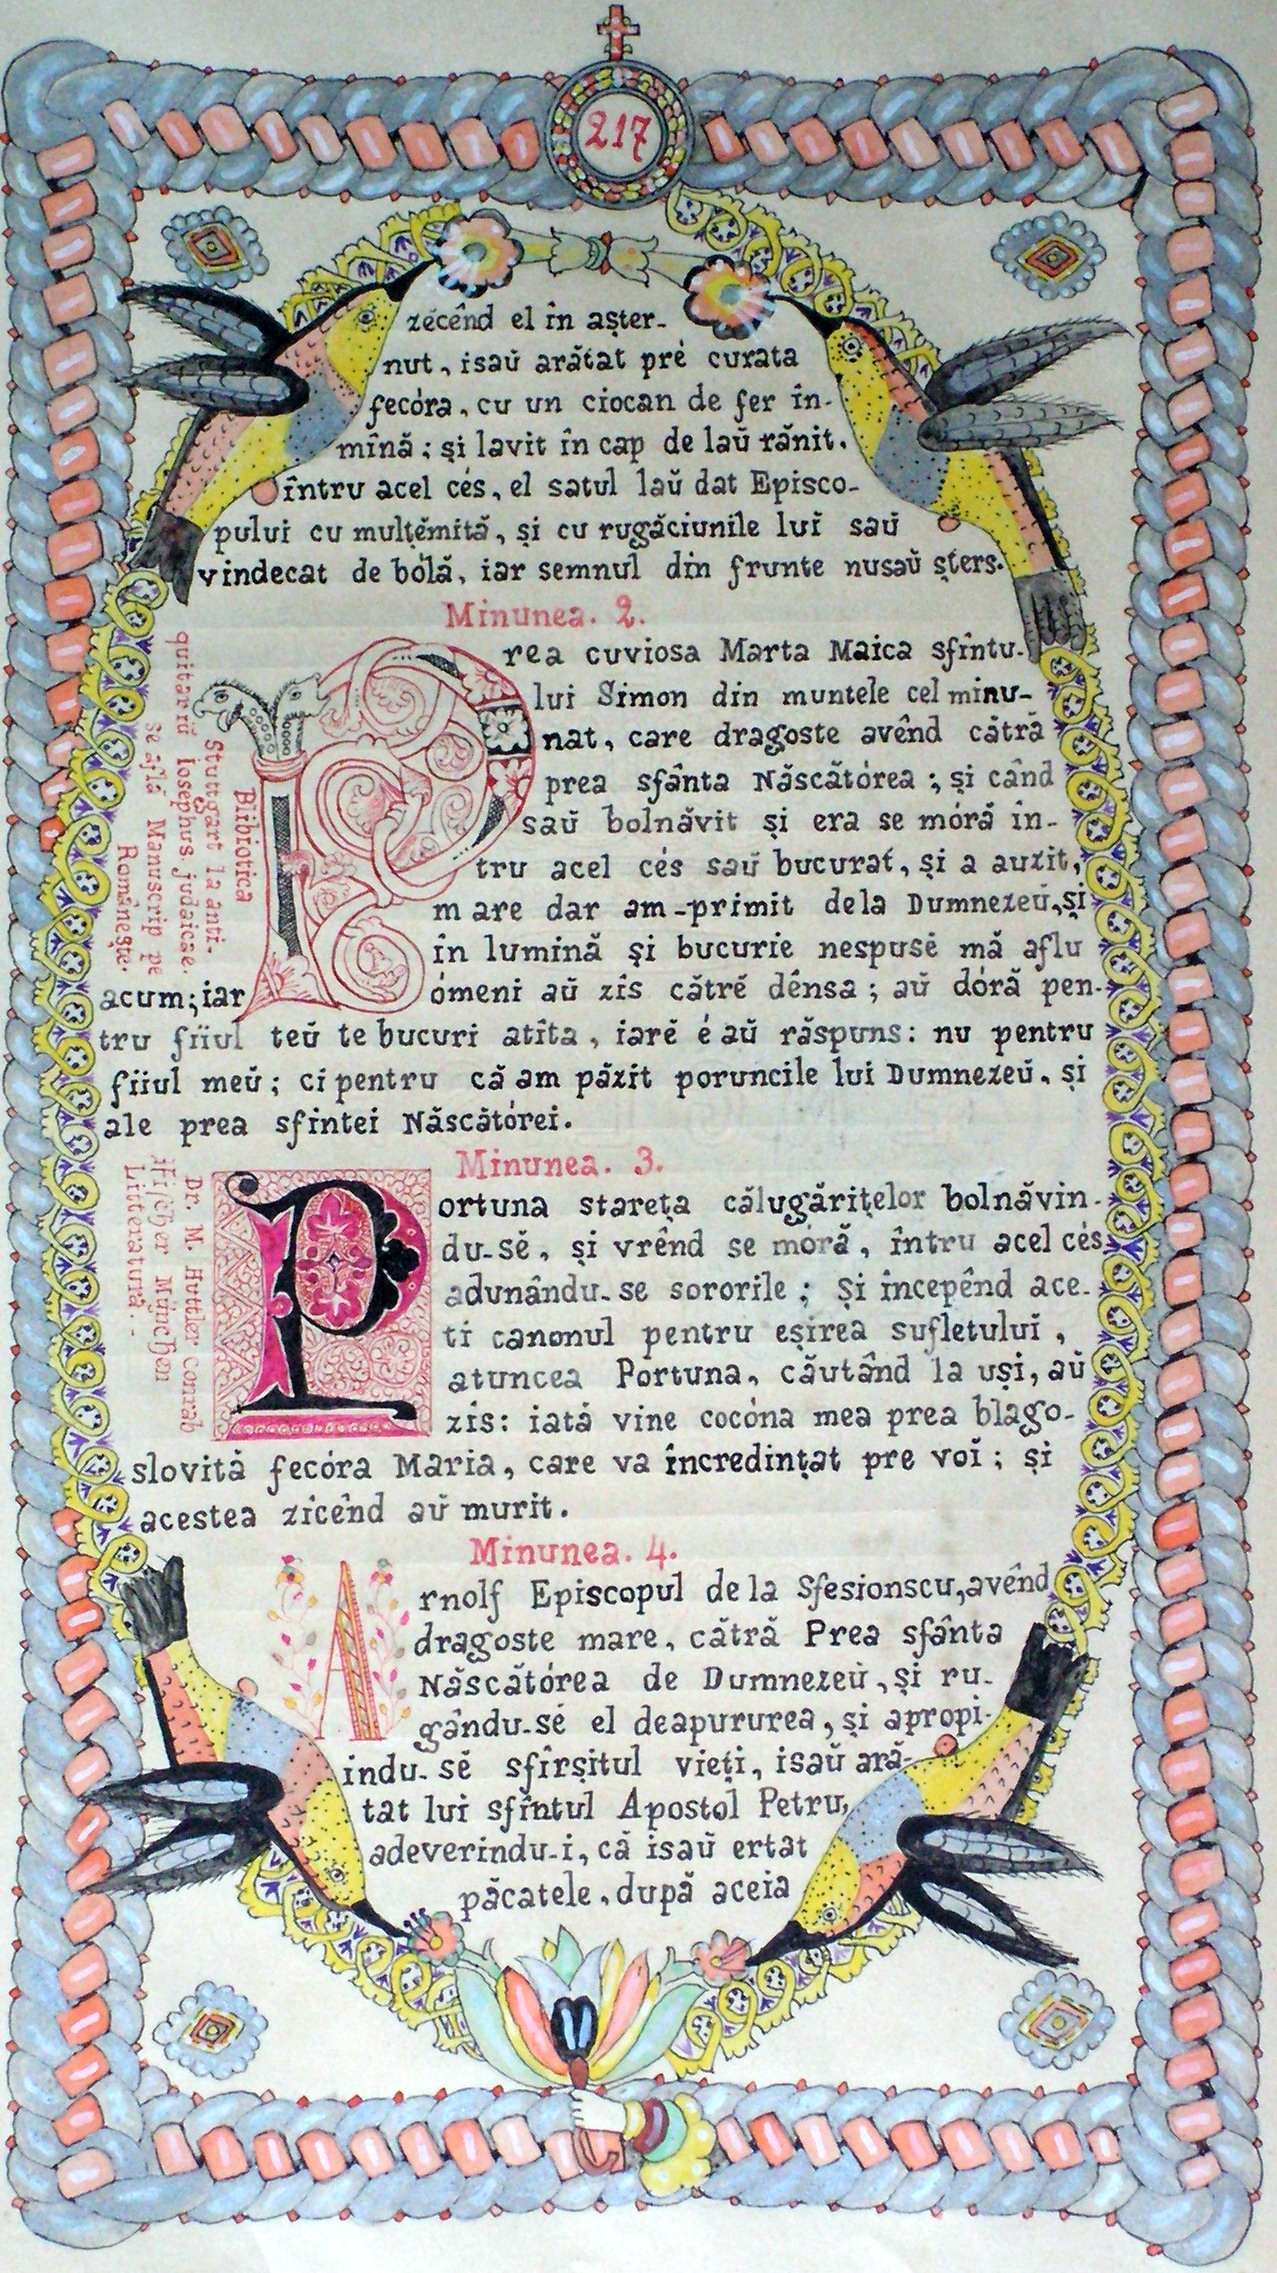 217
zécênd el în așter-
nut, isaŭ arătat pré curata
fecóra, cu un ciocan de fer în-
mînă; și lavit în cap de laŭ rănit.
întru acel cés, el satul laŭ dat Episco-
pului cu mulțĕmită, și cu rugăciunile luĭ saŭ
vindecat de bólă, iar semnul din frunte nusaŭ șters.
Minunea. 2.
rea cuviosa Marta Maica sfîntu-
lui Simon din muntele cel minu-
nat, care dragoste avênd cătră
prea sfânta Născătórea; și când
saŭ bolnăvit și era se móră în-
tru acel cés saŭ bucurat, și a auzit,
mare dar am-primit dela Dumnezeŭ, și
în lumină și bucurie nespusĕ mă aflu
acum; iar ómeni aŭ zis cătrĕ dênsa; aŭ dóră pen-
tru fiiul teŭ te bucuri atîta, iarĕ é aŭ răspuns: nu pentru
fiiul meŭ; ci pentru că am păzit poruncile lui Dumnezeŭ, și
ale prea sfintei Născătórei.
Blibiotica
Stuttgart la anti-
quitarii Iosephus judaicae.
se află Manuscrip pe
Românește.
Minunea. 3.
Portuna starețа călugărițelor bolnăvin-
du-sĕ, și vrênd se móră, întru acel cés
adunându-se sororile; și începênd ace-
ti canonul pentru eșirea sufletului,
atuncea Portuna, căutând la uși, aŭ
zis: iată vine cocóna mea prea blago-
slovită fecóra Maria, care va încredințat pre voĭ; și
acestea zicênd aŭ murit.
Dr. M. Huttler conrab
Fischer München
Litteratură.
Minunea. 4.
Arnolf Episcopul de la Sfesionscu, avênd
dragoste mare, cătră Prea sfânta
Născătórea de Dumnezeŭ, și ru-
gându-sé el deapururea, și apropi-
indu-sĕ sfîrșitul vieți, isaŭ ară-
tat lui sfîntul Apostol Petru,
adeverindu-i, că isaŭ ertat
păcatele, după aceia